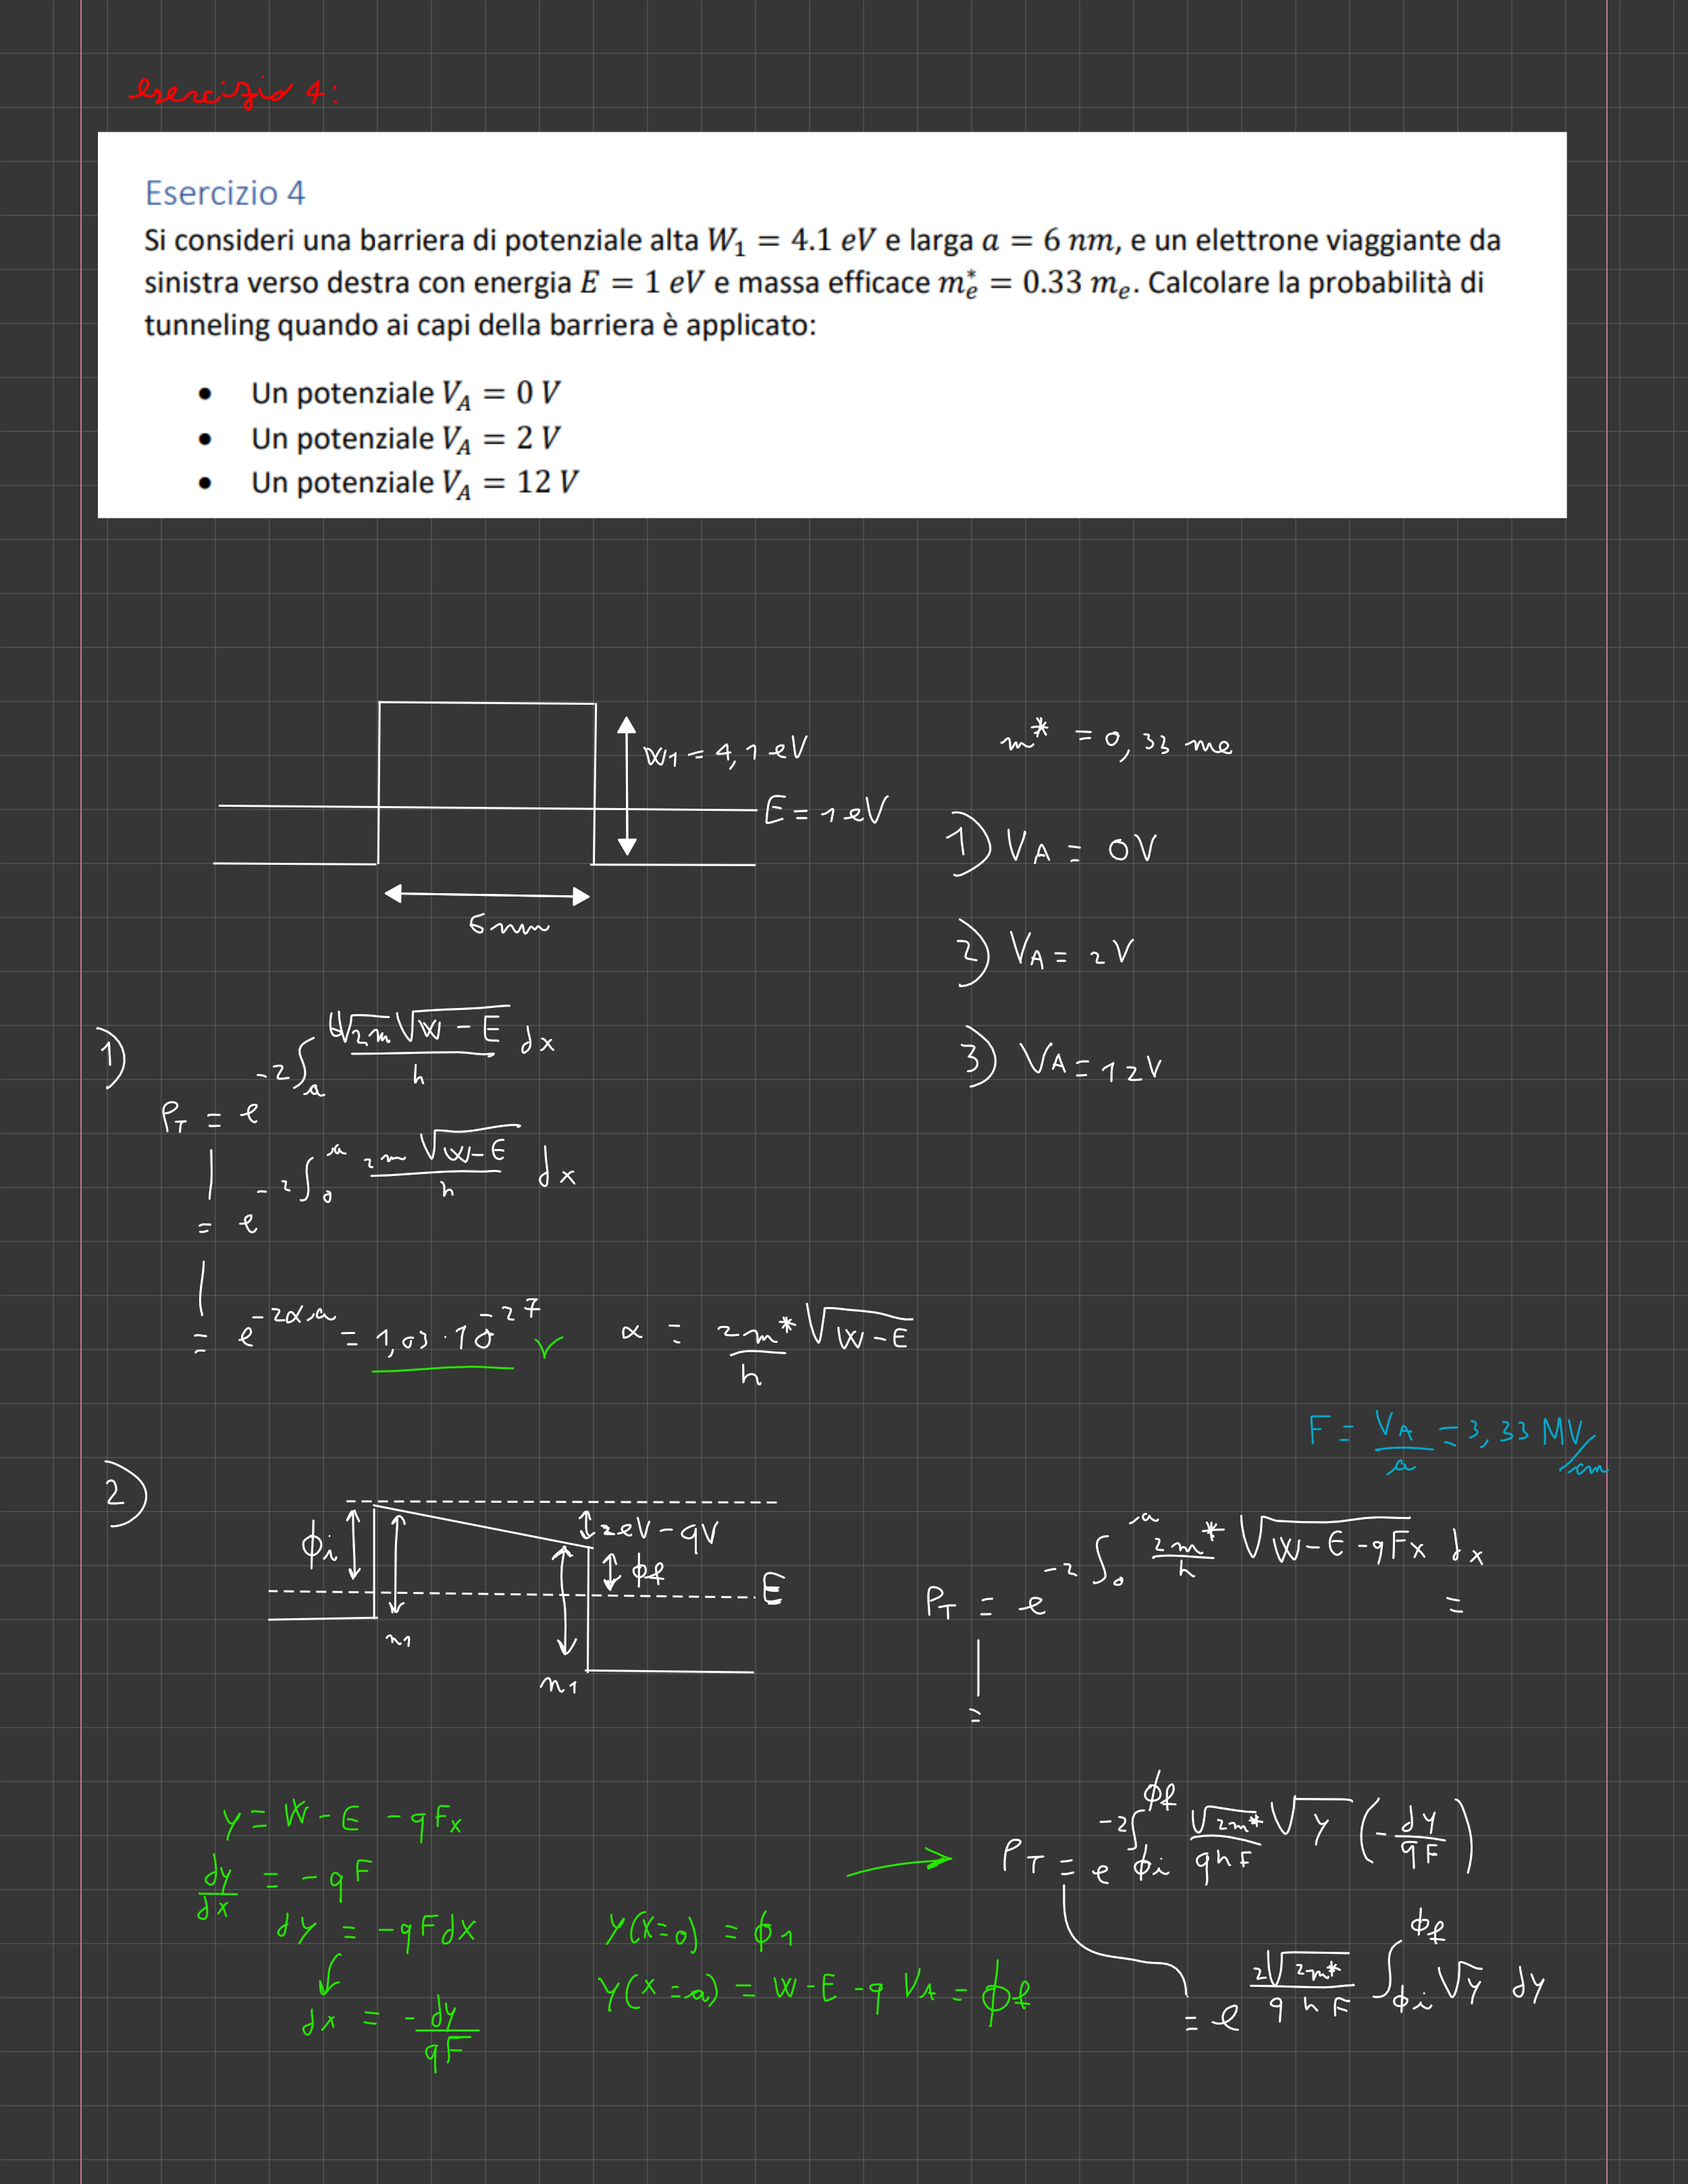 esercizio 4:
Esercizio 4
Si consideri una barriera di potenziale alta W₁ = 4.1 eV e larga a = 6 nm, e un elettrone viaggiante da
sinistra verso destra con energia E = 1 eV e massa efficace m*ₑ = 0.33 mₑ. Calcolare la probabilità di
tunneling quando ai capi della barriera è applicato:
• Un potenziale V_A = 0 V
• Un potenziale V_A = 2 V
• Un potenziale V_A = 12 V
W1 = 4,1 eV
E = 1 eV
6 nm
m* = 0,33 me
1) VA = 0V
2) VA = 2V
3) VA = 12V
1)
PT = e^(-2∫ₐ √2m √(W-E) / ħ dx)
= e^(-2∫₀^a 2m √(W-E) / ħ dx)
= e^(-2αa) = 1,03·10^-27 ✓ α = 2m*/ħ √(W-E)
F = VA/a = 3,33 MV/cm
2)
ϕi
2eV - qV
ϕf
E
n1
n1
PT = e^(-2∫₀^a 2m*/ħ √(W-E-qFx) dx) =
=
y = W - E - qFx
dy/dx = -qF
dy = -qFdx
dx = -dy/qF
y(x=0) = ϕ1
y(x=a) = W - E - q VA = ϕf
→ PT = e^(-2∫_ϕi^ϕf √2m*/qħF √y (-dy/qF))
= e^(2√2m*/qħF ∫_ϕi^ϕf √y dy)